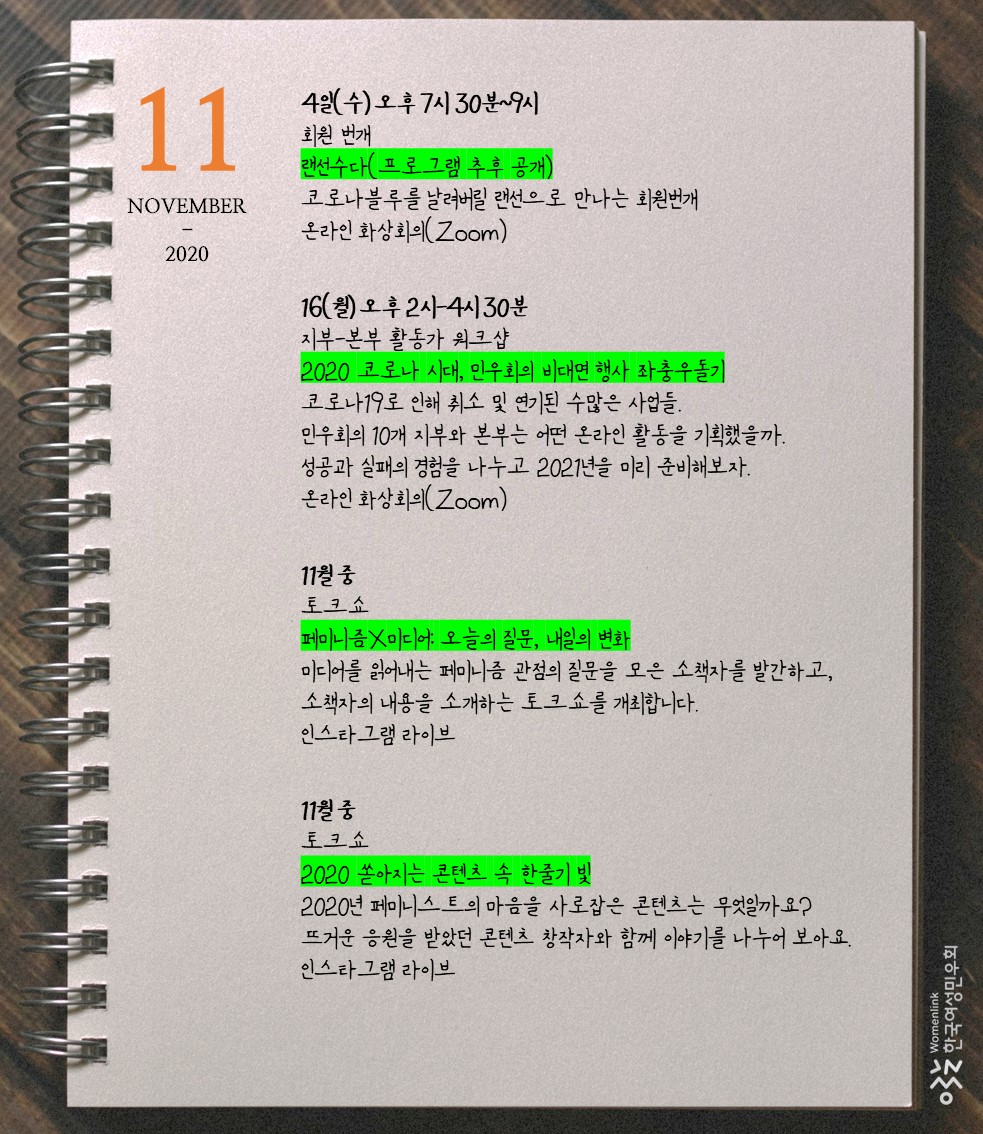 11
NOVEMBER
-
2020
4일(수) 오후 7시 30분~9시
회원 번개
랜선수다(프로그램 추후 공개)
코로나블루를 날려버릴 랜선으로 만나는 회원번개
온라인 화상회의(Zoom)
16(월) 오후 2시-4시 30분
지부-본부 활동가 워크샵
2020 코로나 시대, 민우회의 비대면 행사 좌충우돌기
코로나19로 인해 취소 및 연기된 수많은 사업들.
민우회의 10개 지부와 본부는 어떤 온라인 활동을 기획했을까.
성공과 실패의 경험을 나누고 2021년을 미리 준비해보자.
온라인 화상회의(Zoom)
11월 중
토크쇼
페미니즘X미디어: 오늘의 질문, 내일의 변화
미디어를 읽어내는 페미니즘 관점의 질문을 모은 소책자를 발간하고,
소책자의 내용을 소개하는 토크쇼를 개최합니다.
인스타그램 라이브
11월 중
토크쇼
2020 쏟아지는 콘텐츠 속 한줄기 빛
2020년 페미니스트의 마음을 사로잡은 콘텐츠는 무엇일까요?
뜨거운 응원을 받았던 콘텐츠 창작자와 함께 이야기를 나누어 보아요.
인스타그램 라이브
Womenlink
한국여성민우회